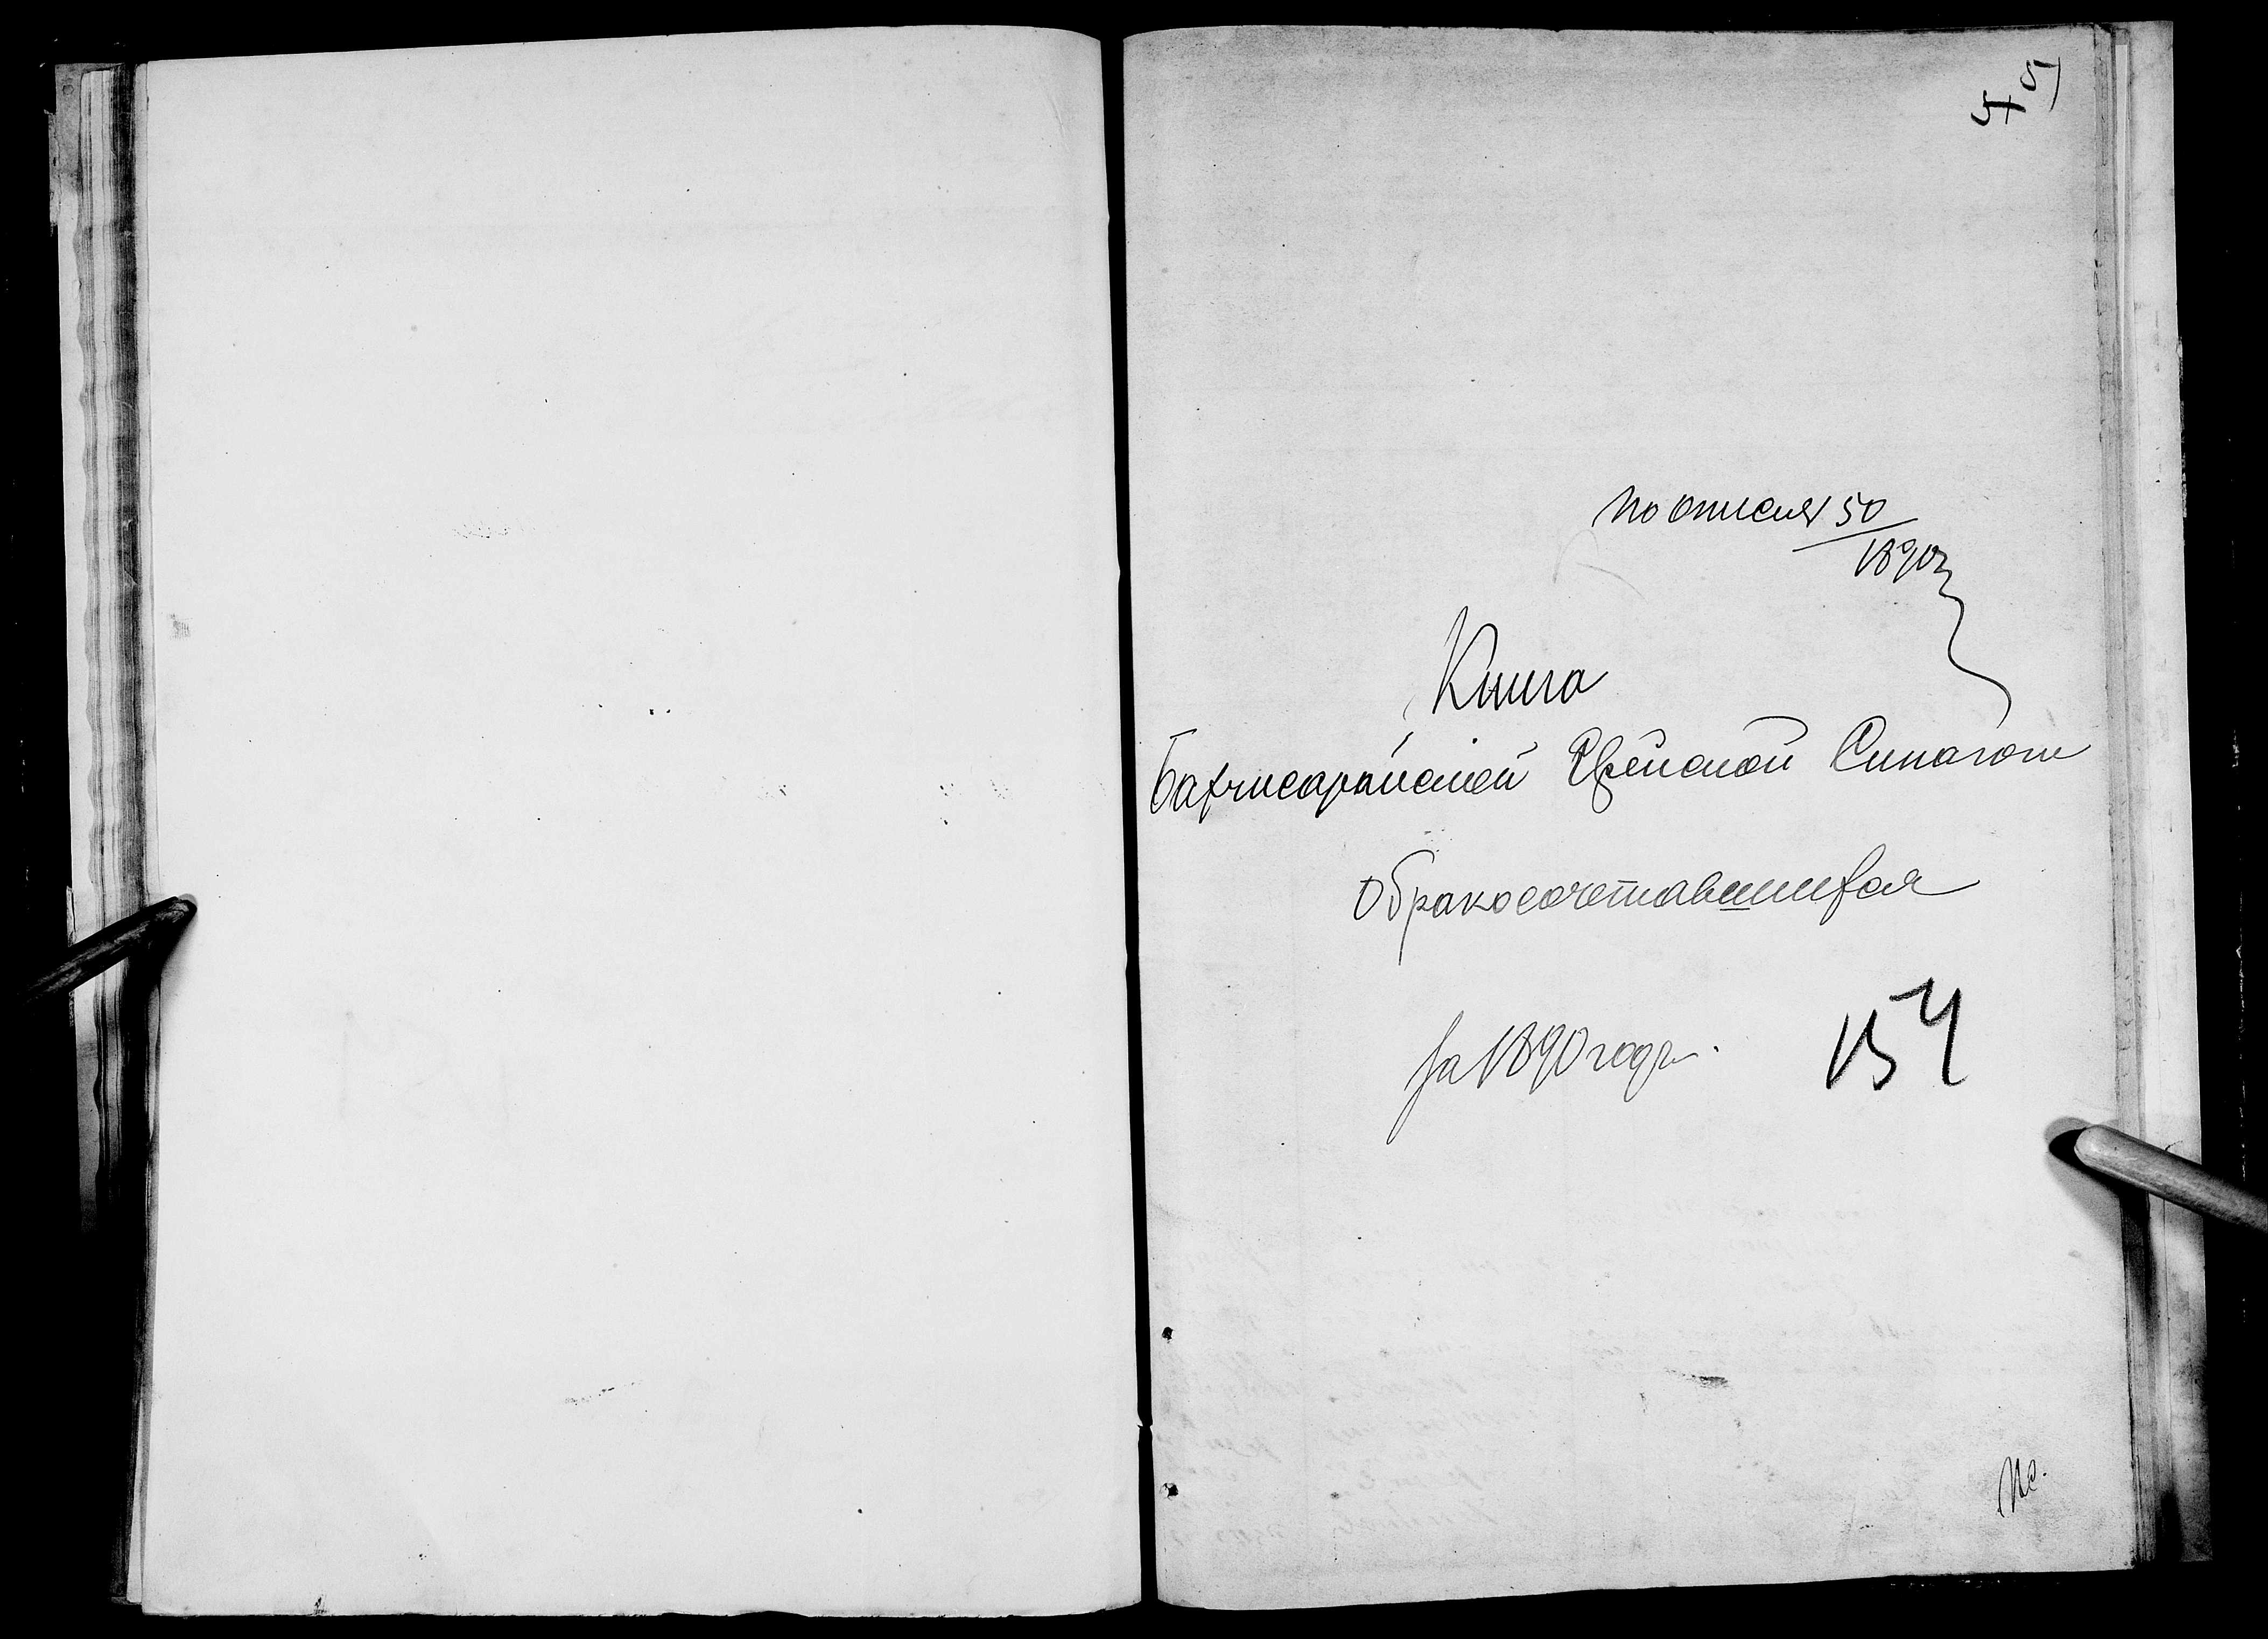 по описи 50
1890 г
Книга
Бахчисарайской Еврейской Синагоги
О бракосочетавшихся
за 1890 годъ.
154